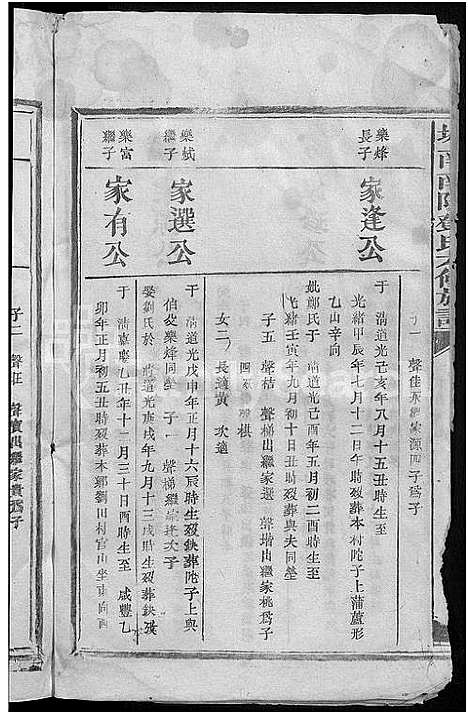 南陽鄧氏六修族譜
子一 聲佳承繼家源四子為子
樂烽
長子
家逢公
于 清道光己亥年八月十五丑時生至
光緒甲辰年七月十二日午時歿葬本村陀子上蒲蘆形
乙山辛向
妣鄭氏于 清道光己酉年五月初二酉時生至
光緒壬寅年九月初十日丑時歿葬與夫同塋
子五 聲桔 聲梯出繼家選 聲增出繼家桃為子
四 棋
女二 長適黃 次適
樂斌
繼子
家選公
于 清道光戊申年正月十六辰時生歿鉄葬陀子上與
伯父樂烽同塋 子一 聲梯繼家 次子
娶劉氏於 清道光庚戌年九月十三戌時生歿葬鉄
樂富
繼子
家有公
于 清嘉慶乙丑年十一月三十日酉時生至 咸豐乙
卯年正月初五丑時歿葬本鄉劉田村官山坐東向西
子二 聲旺 聲賓四繼家貴為子